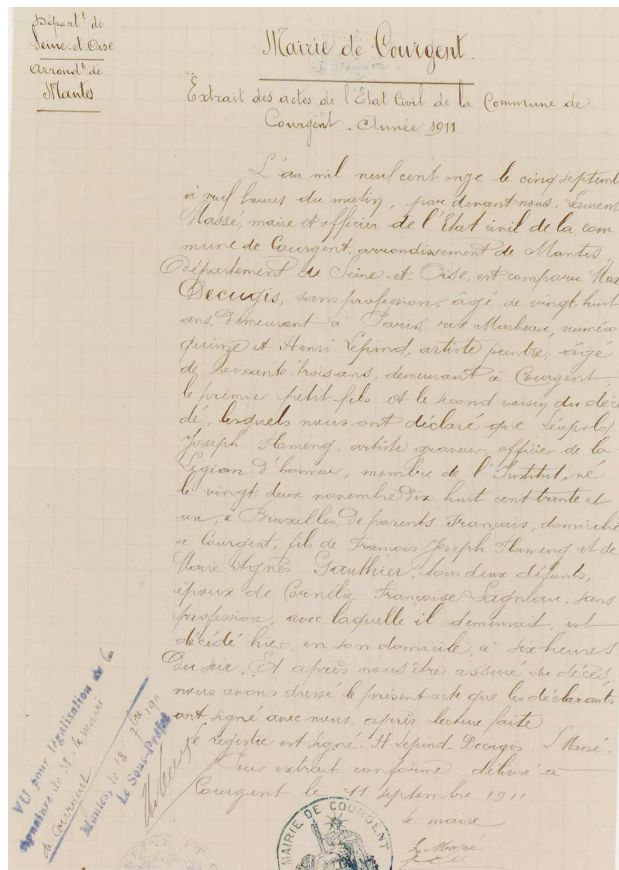 Départ.t de
Seine-et-Oise
Arrond.t de
Mantes
Mairie de Courgent.
Extrait des actes de l'Etat Civil de la Commune de
Courgent. Année 1911
L'an mil neuf cent onze le cinq septemb
à neuf heures du matin, par devant nous, Laurent
Massé, maire et officier de l'Etat civil de la com
mune de Courgent, arrondissement de Mantes,
Département de Seine-et-Oise, est comparu Max
Decugis, sans profession, âgé de vingt-huit
ans, demeurant à Paris, rue Marbeau, numéro
quinze et Henri Lepind, artiste peintre, âgé
de soixante-trois ans, demeurant à Courgent,
le premier petit-fils et le second voisin du décé
dé, lesquels nous ont déclaré que Léopold
Joseph Flameng, artiste graveur, officier de la
Légion d'honneur, membre de l'Institut, né
le vingt-deux novembre dix huit cent trente et
un, à Bruxelles, de parents Français, domicilié
à Courgent, fils de François Joseph Flameng et de
Marie Agnès Gauthier, tous deux défunts,
époux de Cornélie Françoise Sagneau, sans
profession, avec laquelle il demeurait, est
décédé hier, en son domicile, à six heures
du soir. Et après nous être assuré du décès,
nous avons dressé le présent acte que les déclarants
ont signé avec nous, après lecture faite
le registre est signé: H Lepind - Decugis - L Massé.
Pour extrait conforme délivré à
Courgent le 11 septembre 1911
le maire
L Massé
VU pour légalisation de la
signature de M. le maire
de Courgent
Mantes, le 13 7bre 1911
Le Sous-Préfet
MAIRIE DE COURGENT